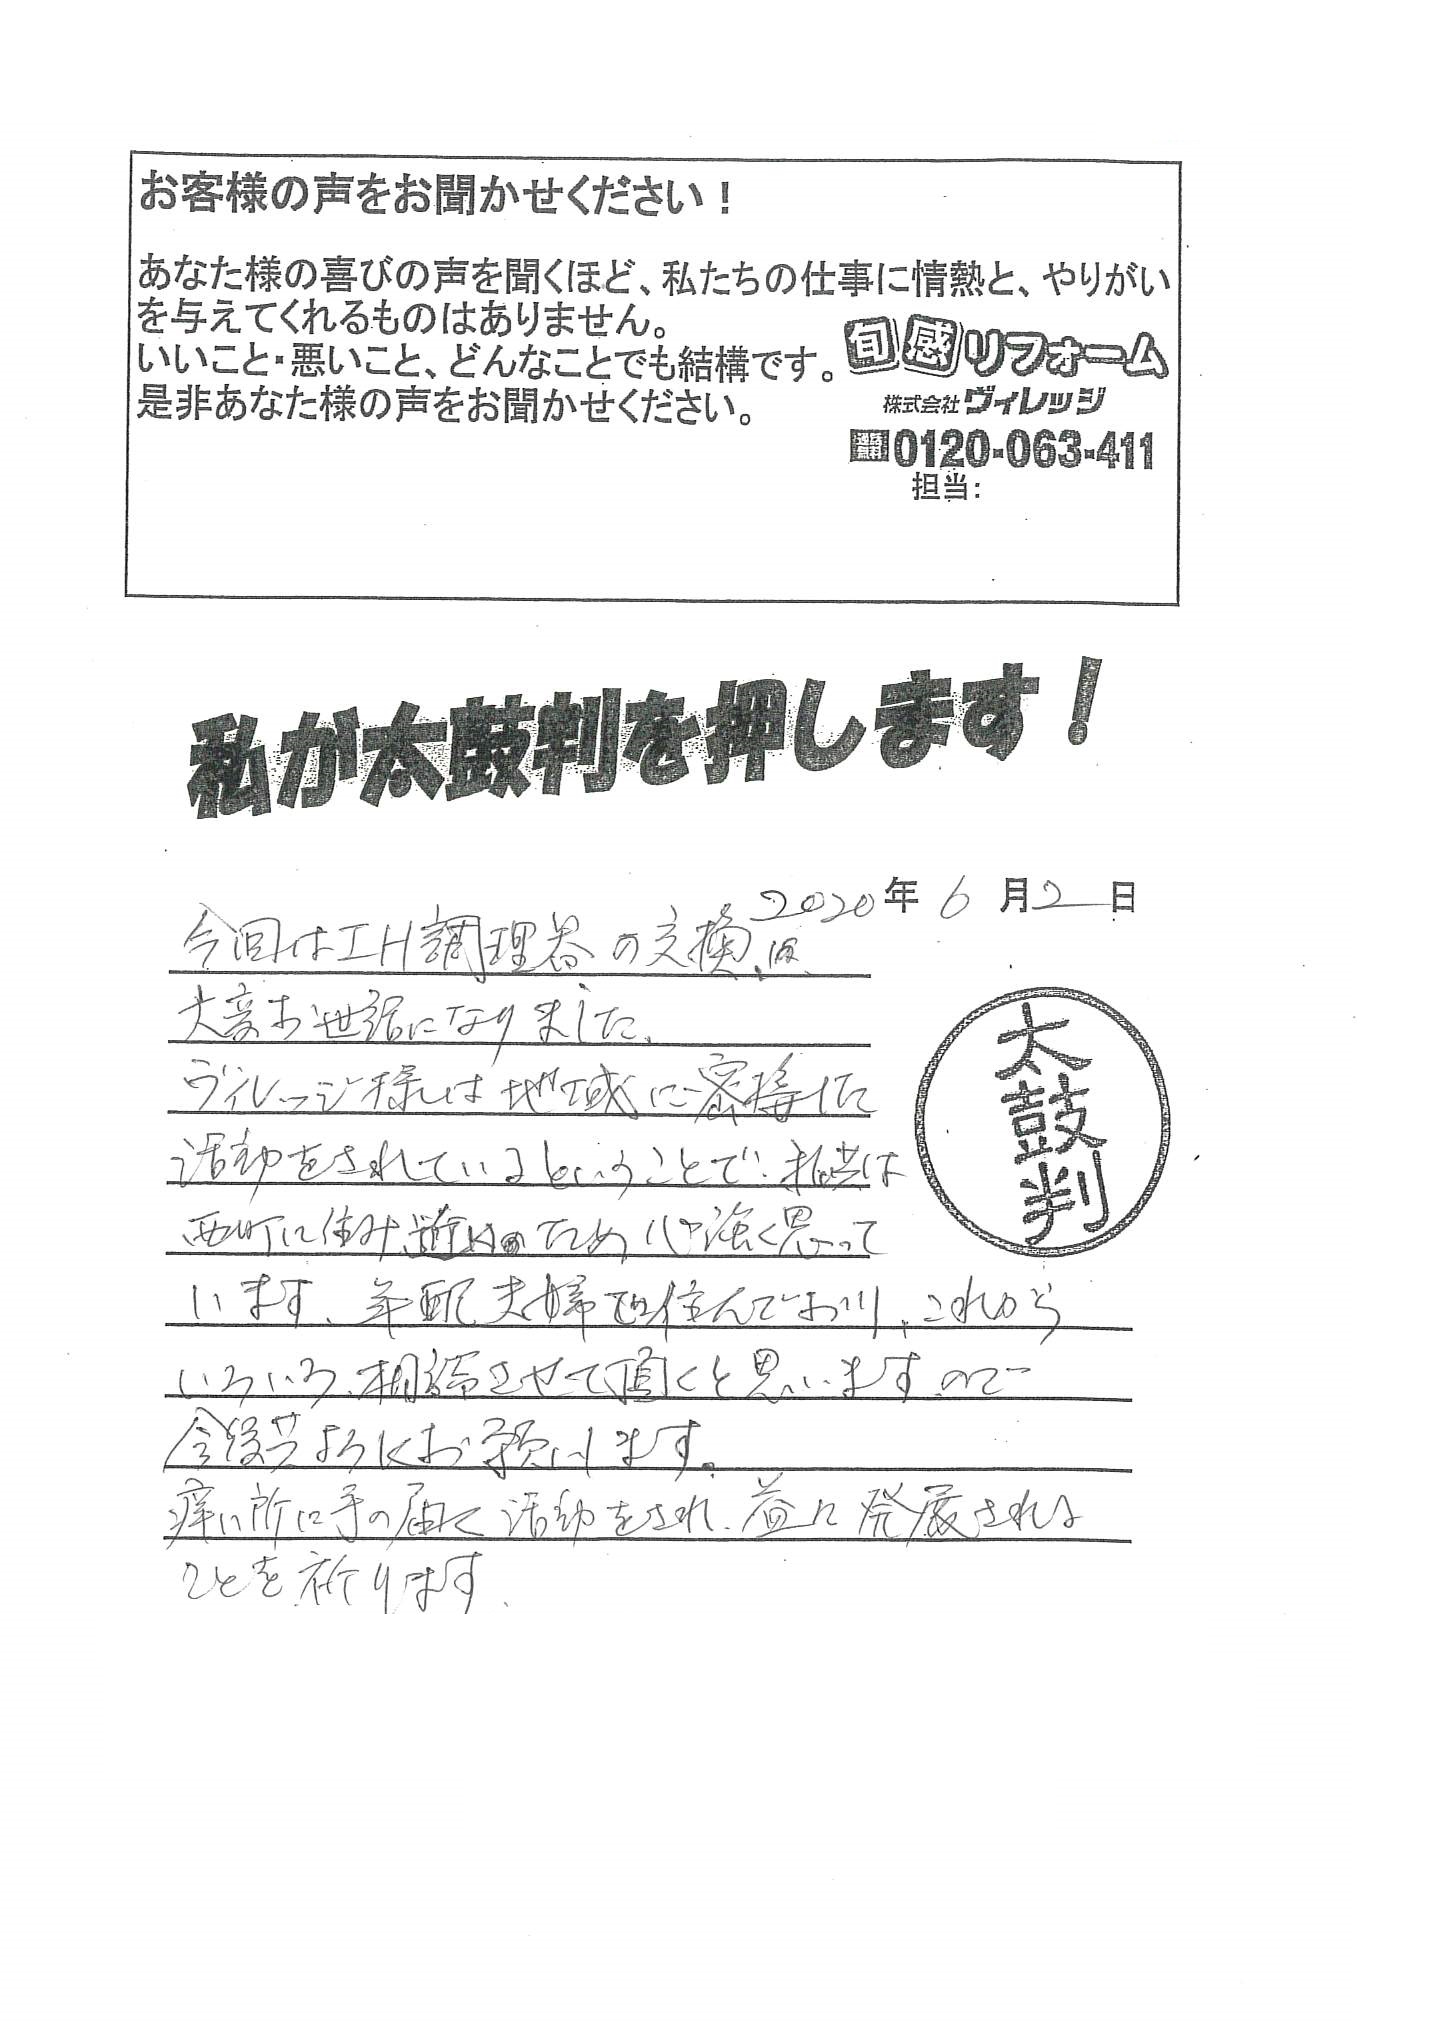 お客様の声をお聞かせください！
あなた様の喜びの声を聞くほど、私たちの仕事に情熱と、やりがい
を与えてくれるものはありません。
いいこと・悪いこと、どんなことでも結構です。
是非あなた様の声をお聞かせください。
旬感リフォーム
株式会社ヴィレッジ
通話無料0120-063-411
担当：
私が太鼓判を押します！
2020年6月2日
今回はIH調理器の交換、
大変お世話になりました。
ヴィレッジ様は地域に密接した
活動をされているということで、私共は
西町に住み、近いため心強く思って
います。年配夫婦で住んでおり、これから
いろいろ、相談させて頂くと思いますので
今後共よろしくお願いします。
痒い所に手の届く活動をされ、益々発展される
ことを祈ります。
太鼓判